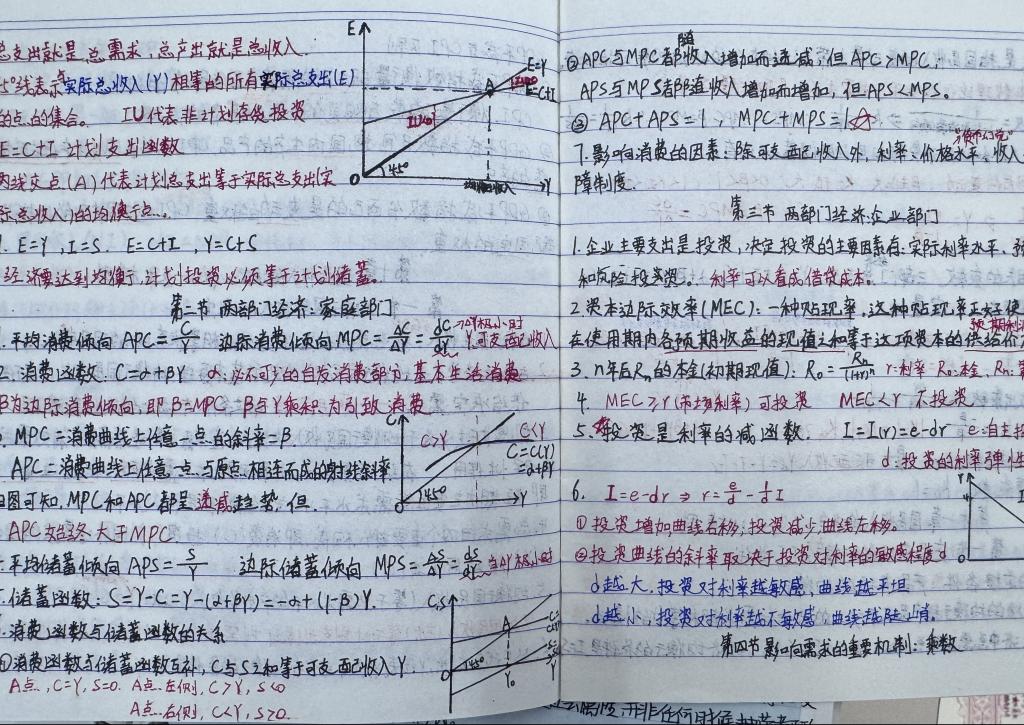 总支出就是总需求,总产出就是总收入.
45°线表示实际总收入(Y)相等的所有实际总支出(E)
的点的集合。 IU代表非计划存货投资
E=C+I 计划支出函数
两线交点(A)代表计划总支出等于实际总支出(实
际总收入)的均衡点.。
1. E=Y, I=S. E=C+I, Y=C+S
经济要达到均衡,计划投资必须等于计划储蓄。
E
E=Y
E=C+I
A
IU>0
IU<0
45°
0
均衡收入
Y
第二节 两部门经济:家庭部门
1.平均消费倾向 APC=C/Y 边际消费倾向 MPC=ΔC/ΔY=dC/dY →ΔY极小时
Y可支配收入
2.消费函数: C=α+βY α:必不可少的自发消费部分,基本生活消费
β为边际消费倾向,即β=MPC β与Y乘积为引致消费
3. MPC=消费曲线上任意一点的斜率=β.
APC=消费曲线上任意一点与原点相连而成的射线斜率
由图可知,MPC和APC都呈递减趋势,但.
APC始终大于MPC.
C
C>Y
C<Y
C=C(Y)
=α+βY
45°
0
Y
平均储蓄倾向 APS=S/Y 边际储蓄倾向 MPS=ΔS/ΔY=dS/dY 当ΔY极小时
储蓄函数: S=Y-C=Y-(α+βY)=-α+(1-β)Y.
消费函数与储蓄函数的关系
①消费函数与储蓄函数互补,C与S之和等于可支配收入Y
A点.,C=Y,S=0. A点.左侧,C>Y,S<0
A点.右侧,C<Y,S>0.
C,S
A
45°
0
Y₀
Y
随
②APC与MPC都收入增加而递减,但APC>MPC.
APS与MPS都随收入增加而增加,但APS<MPS。
③ APC+APS=1, MPC+MPS=1☆
7.影响消费的因素:除可支配收入外,利率、价格水平、收入
障制度.
第三节 两部门经济:企业部门
1.企业主要支出是投资,决定投资的主要因素有:实际利率水平、预
和风险投资资.∴利率可以看成借贷成本。
2资本边际效率(MEC):一种贴现率.这种贴现率正好使
预期利润
在使用期内各预期收益的现值之和等于这项资本的供给价
3. n年后Rn的本金(初期现值): R₀=Rn/(1+r)ⁿ r:利率 R₀:本金、Rn:第
4. MEC≥r(市场利率)可投资 MEC<r 不投资
5.投资是利率的减函数. I=I(r)=e-dr e:自主投
d:投资的利率弹性
6. I=e-dr ⇒ r=e/d-1/d I
①投资增加曲线右移;投资减少曲线左移.
②投资曲线的斜率取决于投资对利率的敏感程度d
d越大.投资对利率越敏感,曲线越平坦
d越小,投资对利率越不敏感,曲线越陡峭.
r
I
0
第四节 影响需求的重要机制:乘数